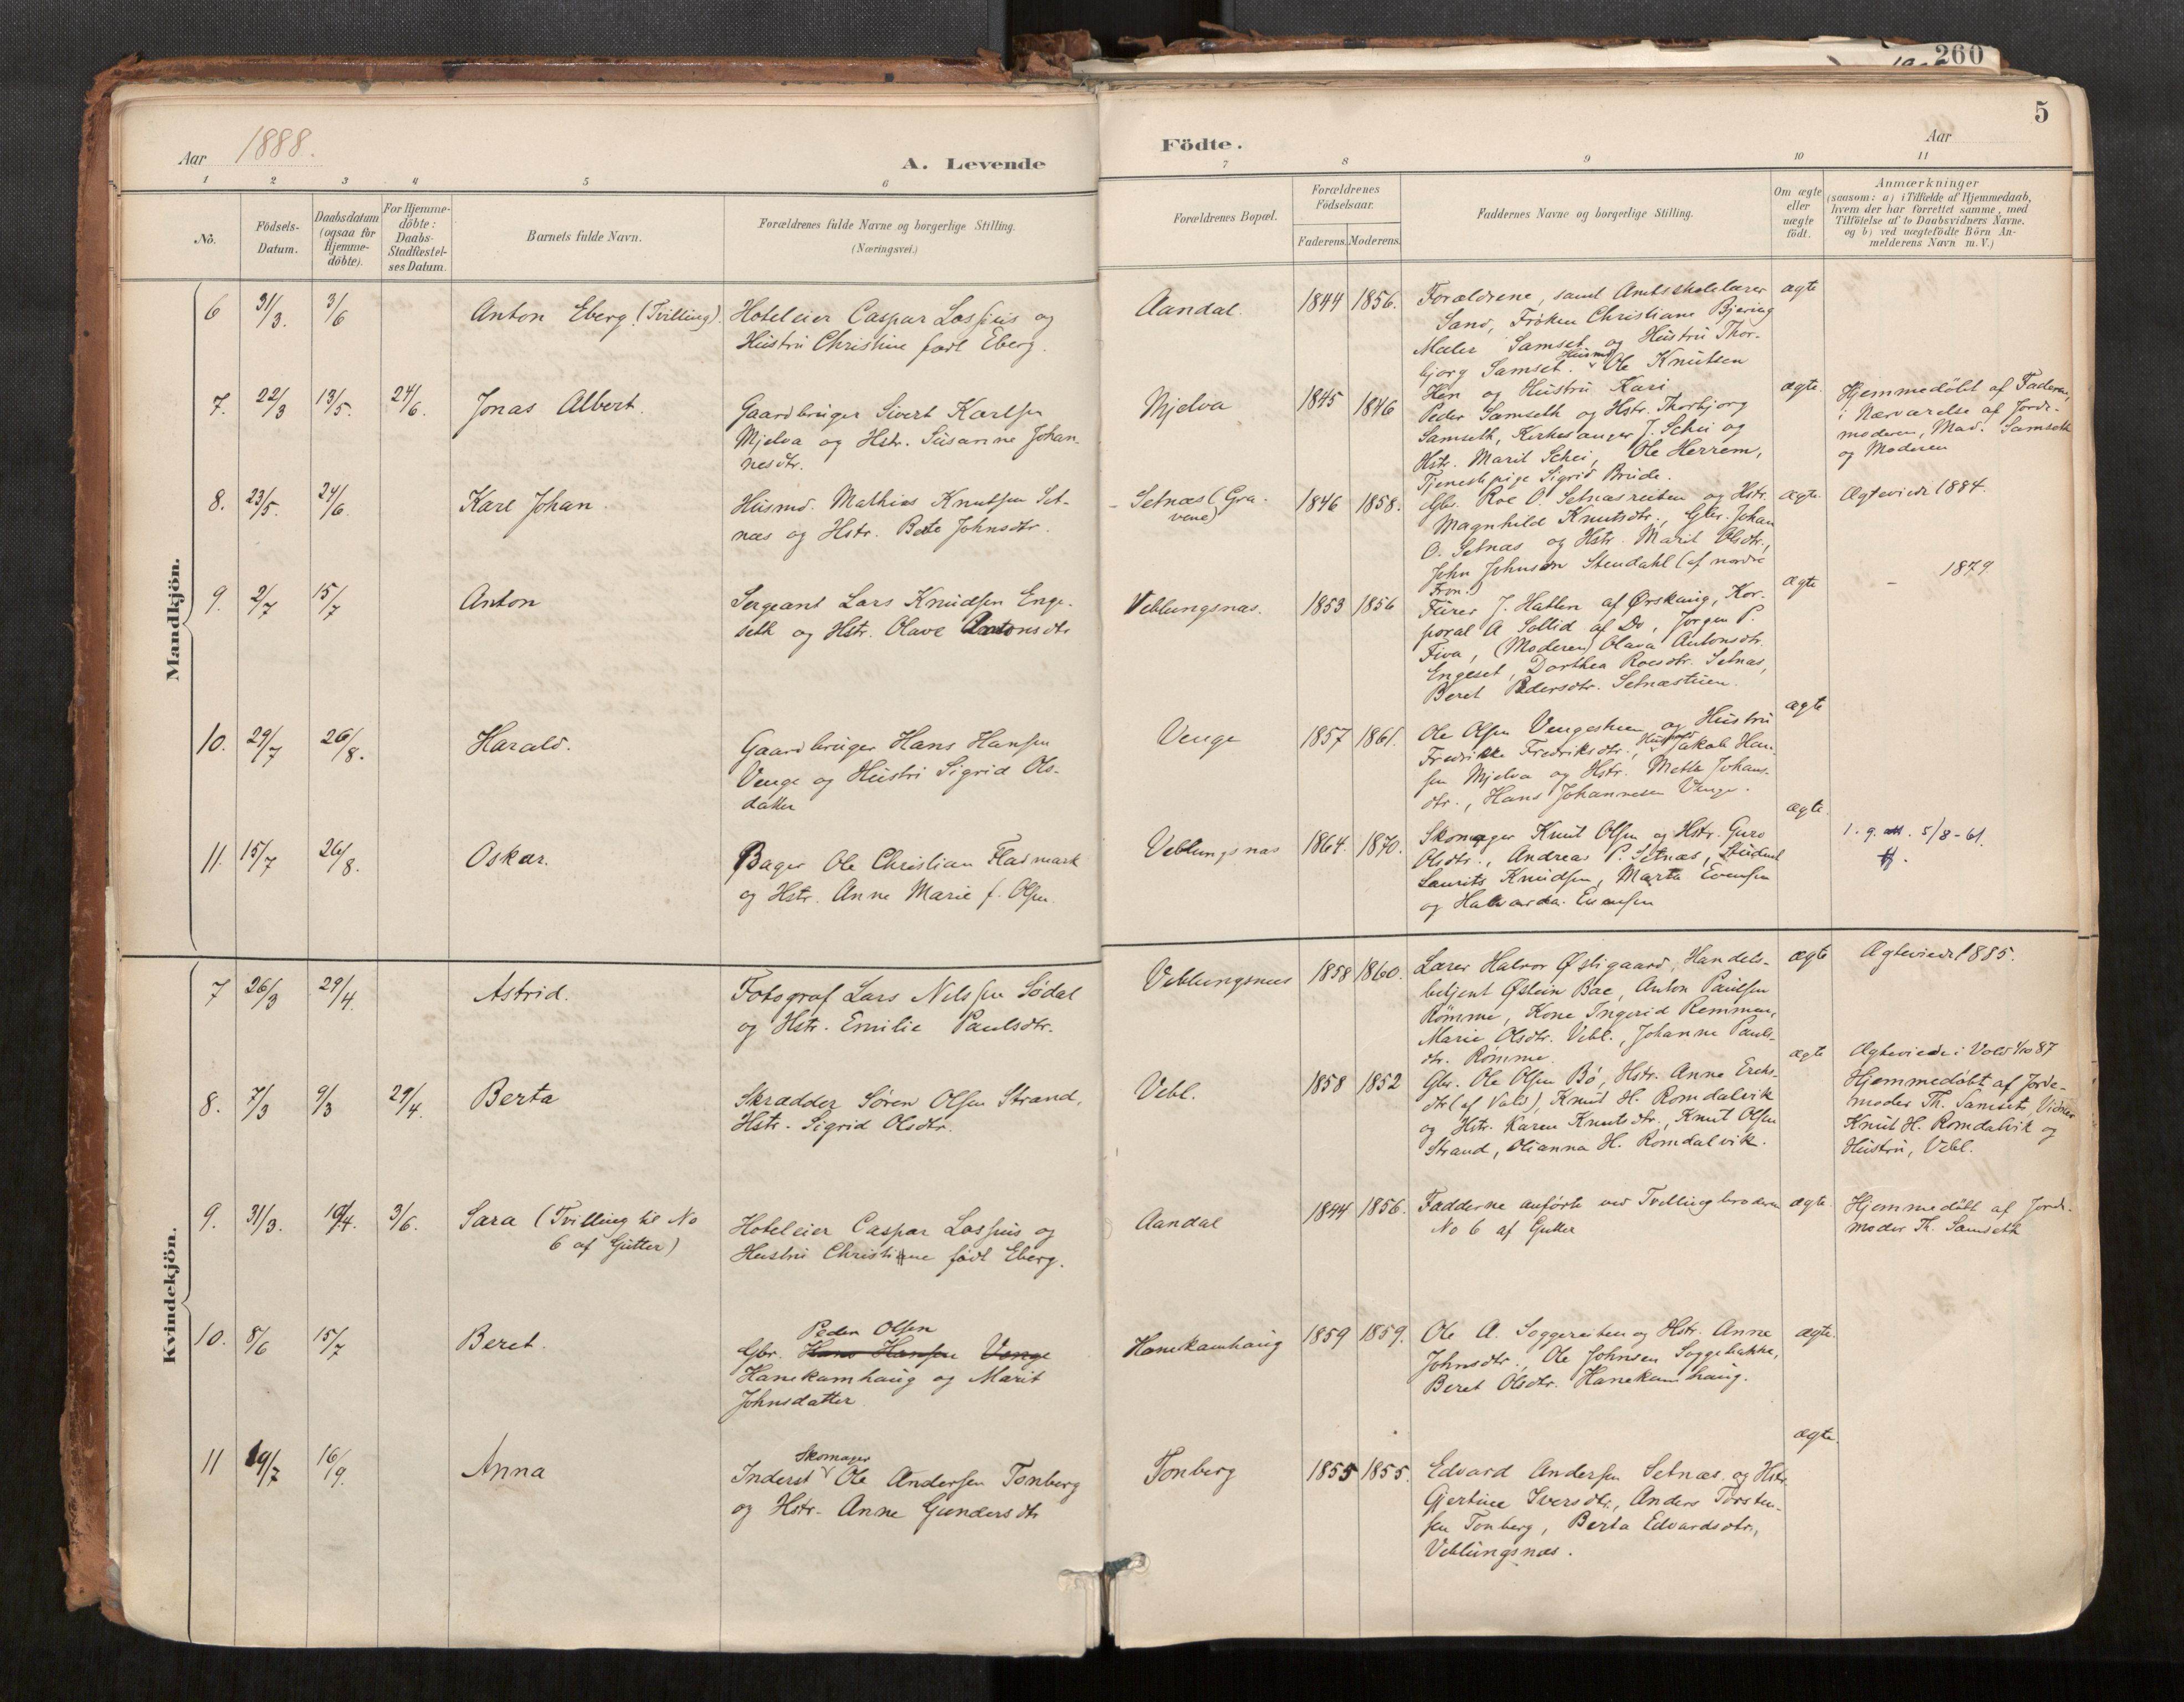 260
5
Aar 1888.
A. Levende
Födte.
Aar
1 2 3 4 5 6 7 8 9 10 11
No.
Födsels-
Datum.
Daabsdatum
(ogsaa for
Hjemme-
döbte).
For Hjemme-
döbte:
Daabs-
Stadfæstel-
ses Datum.
Barnets fulde Navn.
Forældrenes fulde Navne og borgerlige Stilling.
(Næringsvei.)
Forældrenes Bopæl.
Forældrenes
Födselsaar.
Faderens. Moderens.
Faddernes Navne og borgerlige Stilling.
Om ægte
eller
uægte
födt.
Anmærkninger
(saasom: a) i Tilfælde af Hjemmedaab,
hvem der har forrettet samme, med
Tilföielse af to Daabsvidners Navne,
og b) ved uægtefödte Börn An-
melderens Navn m. V.)
Mandkjön.
6 31/3. 3/6 Anton Eberg (Tvilling).
Hoteleier Caspar Lossius og
Hustru Christine født Eberg.
Aandal. 1844 1856.
Forældrene, samt Amtsskolelærer
Sand, Frøken Christiane Bjering
Maler Samset og Hustru Thor-
bjørg Samset. Husmd Ole Knutsen
Hen og Hustru Kari
ægte
7. 22/3 13/5. 24/6. Jonas Albert.
Gaardbruger Sivert Karlsen
Mjelva og Hstr. Susanne Johan-
nesdtr.
Mjelva 1845 1846
Peder Samseth og Hstr. Thorbjørg
Samseth, Kirkesanger J. Schei og
Hstr. Marit Schei, Ole Herrem,
Tjenestepige Sigrid Brude.
ægte.
Hjemmedöbt af Faderen,
i Nærværelse af Jorde-
moderen, Mad. Samseth
og Moderen
8. 23/5. 24/6. Karl Johan.
Husmd. Mathias Knutsen Set-
næs og Hstr. Berte Johnsdtr.
Setnæs (Gra-
vene) 1846 1858.
Gbr. Roe O. Setnæsreiten og Hstr.
Magnhild Knutsdtr., Gbr. Johan
O. Setnæs og Hstr. Marit Olsdtr.,
John Johnsen Stendahl (af nordre
Fron.)
ægte. Ægteviede 1884.
9. 2/7 15/7 Anton
Sergeant Lars Knudsen Enge-
seth og Hstr. Olave Antonsdtr
Veblungsnæs. 1853 1856
Furer J. Hatlen af Ørskaug, Kor-
poral A Sollid af Do, Jørgen P.
Fiva, (Moderen) Olava Antonsdtr.
Engeset, Dorthea Roesdtr. Setnæs,
Beret Pedersdtr. Setnæstuen.
ægte - 1879
10. 29/7 26/8. Harald.
Gaardbruger Hans Hansen
Venge og Hustru Sigrid Ols-
datter
Venge 1857 1861.
Ole Olsen Vengesteen og Hustru
Fredrikke Fredriksdtr., Husmd Jakob Han-
sen Mjelva og Hstr. Mette Johans-
dtr., Hans Johannesen Venge.
ægte
11. 15/7 26/8. Oskar.
Bager Ole Christian Fladmark
og Hstr. Anne Marie f. Olsen.
Veblungsnæs 1864. 1870.
Skomager Knut Olsen og Hstr. Guro
Olsdtr., Andreas P. Setnæs, Student
Laurits Knudsen, Marta Evensen
og Halvarda Evensen
ægte.
1. g. att. 5/8-61.
Kvindekjön.
7 26/3 29/4. Astrid.
Fotograf Lars Nilssen Sødal
og Hstr. Emilie Paulsdtr.
Veblungsnæs 1858 1860.
Lærer Halvor Østigaard, Handels-
betjent Østein Bae, Anton Paulsen
Römme, Kone Ingerid Remmem,
Marie Olsdtr. Vebl., Johanne Pauls-
dtr. Römme.
ægte Ægteviede 1885.
8. 7/3 9/3 29/4. Berta
Skrædder Søren Olsen Strand,
Hstr. Sigrid Olsdtr.
Vebl. 1858 1852
Gbr. Ole Olsen Bö, Hstr. Anne Ereks-
dtr (af Vold), Knut H. Romdalsvik
og Hstr. Karen Knutsdtr., Knut Olsen
Strand, Olianna H. Romdalsvik.
ægte
Ægteviede i Vold 1/10 87
Hjemmedöbt af Jorde-
moder Th. Samseth, Vidner
Knut H. Romdalsvik og
Hustru, Vebl.
9. 31/3. 10/4. 3/6. Sara (Tvilling til No
6 af Gutter)
Hoteleier Caspar Lossius og
Hustru Christine født Eberg.
Aandal 1844 1856.
Fadderne anførte ved Tvillingbroderen
No 6 af Gutter
ægte.
Hjemmedöbt af Jorde-
moder Th. Samseth
10. 8/6 15/7 Beret.
Peder Olsen
Gbr. Hans Hansen Venge
Hanekamhaug og Marit
Johnsdatter
Hanekamhaug 1859 1859.
Ole A. Soggereiten og Hstr. Anne
Johnsdtr., Ole Johnsen Soggebakke,
Beret Olsdtr. Hanekamhaug.
ægte.
11 19/7 16/9. Anna
Skomager
Inderst Ole Andersen Tonberg
og Hstr. Anne Gundersdtr
Tonberg 1855 1855.
Edvard Andersen Setnæs og Hstr.
Gjertine Iversdtr., Anders Torsten-
sen Tonberg, Berta Edvardsdtr.,
Veblungsnæs.
ægte.